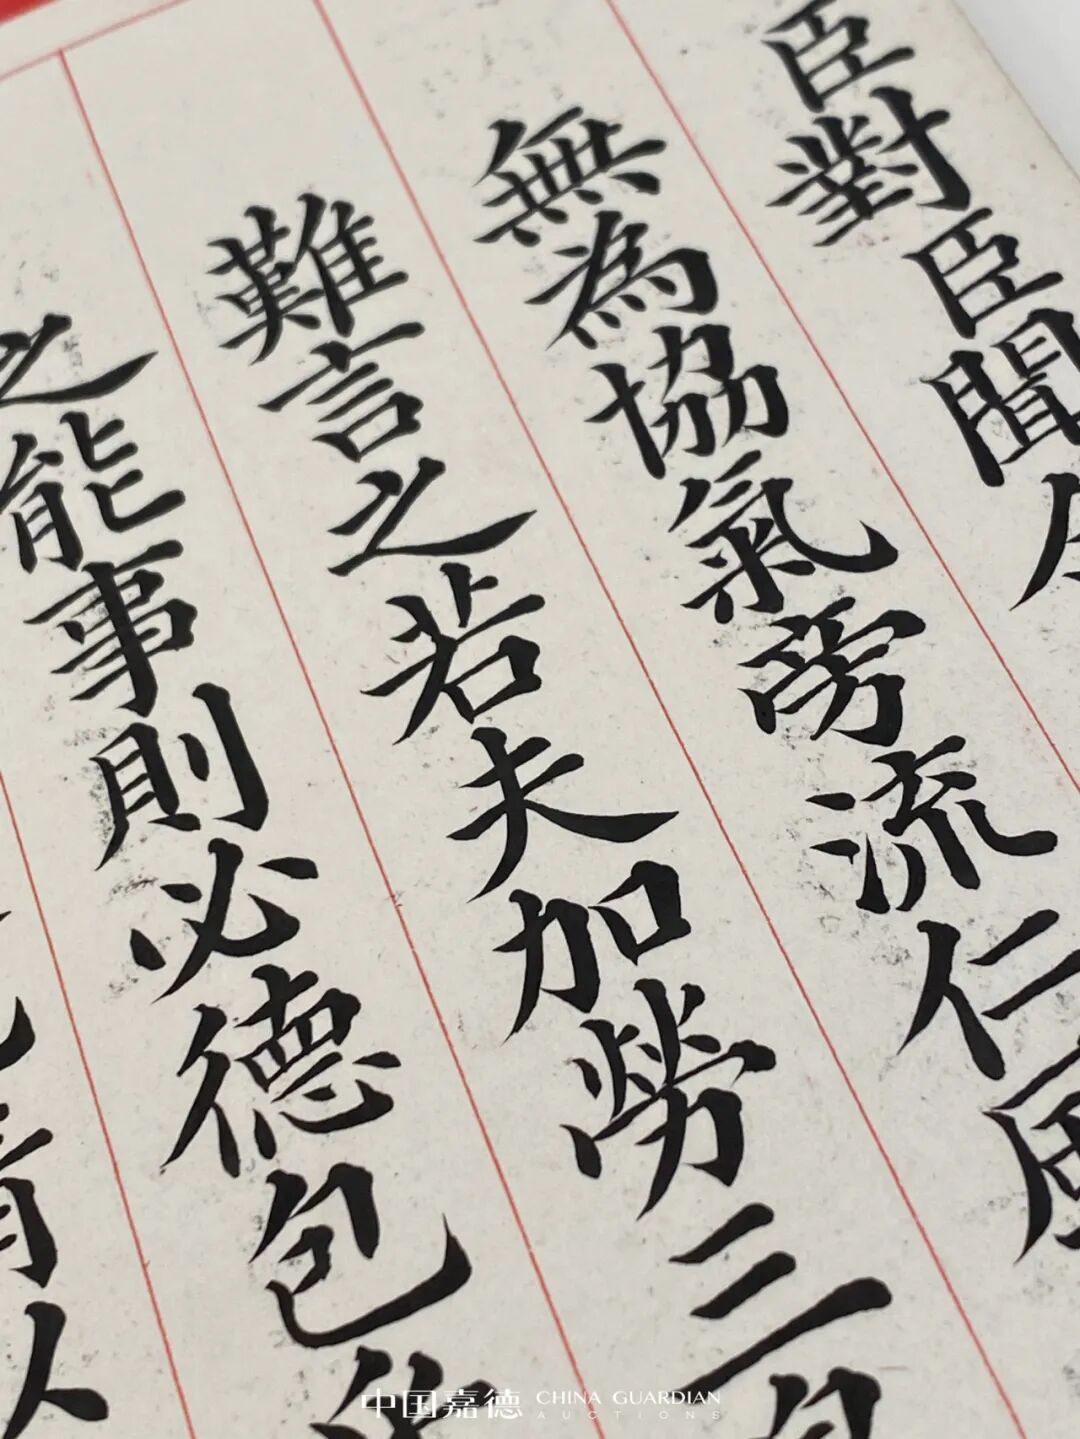 臣對臣聞
無為協氣旁流仁風
難言之若夫加勞三
之能事則必德包
人
中国嘉德 CHINA GUARDIAN
AUCTIONS